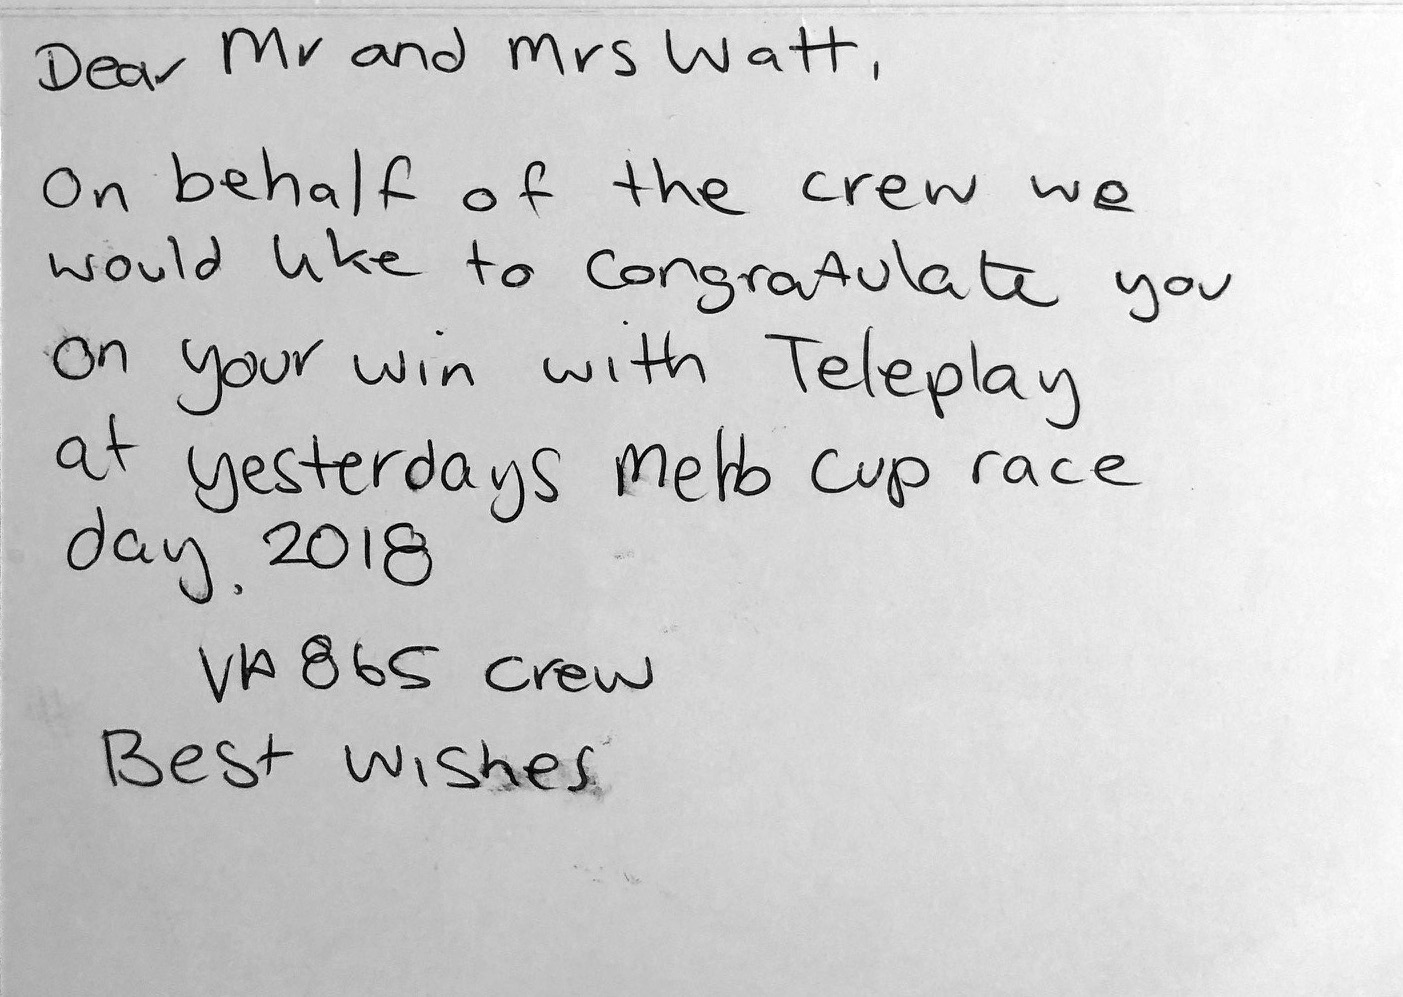 Dear Mr and Mrs Watt,
On behalf of the crew we
would like to congratulate you
on your win with Teleplay
at yesterdays Melb Cup race
day. 2018
VA 865 crew
Best wishes